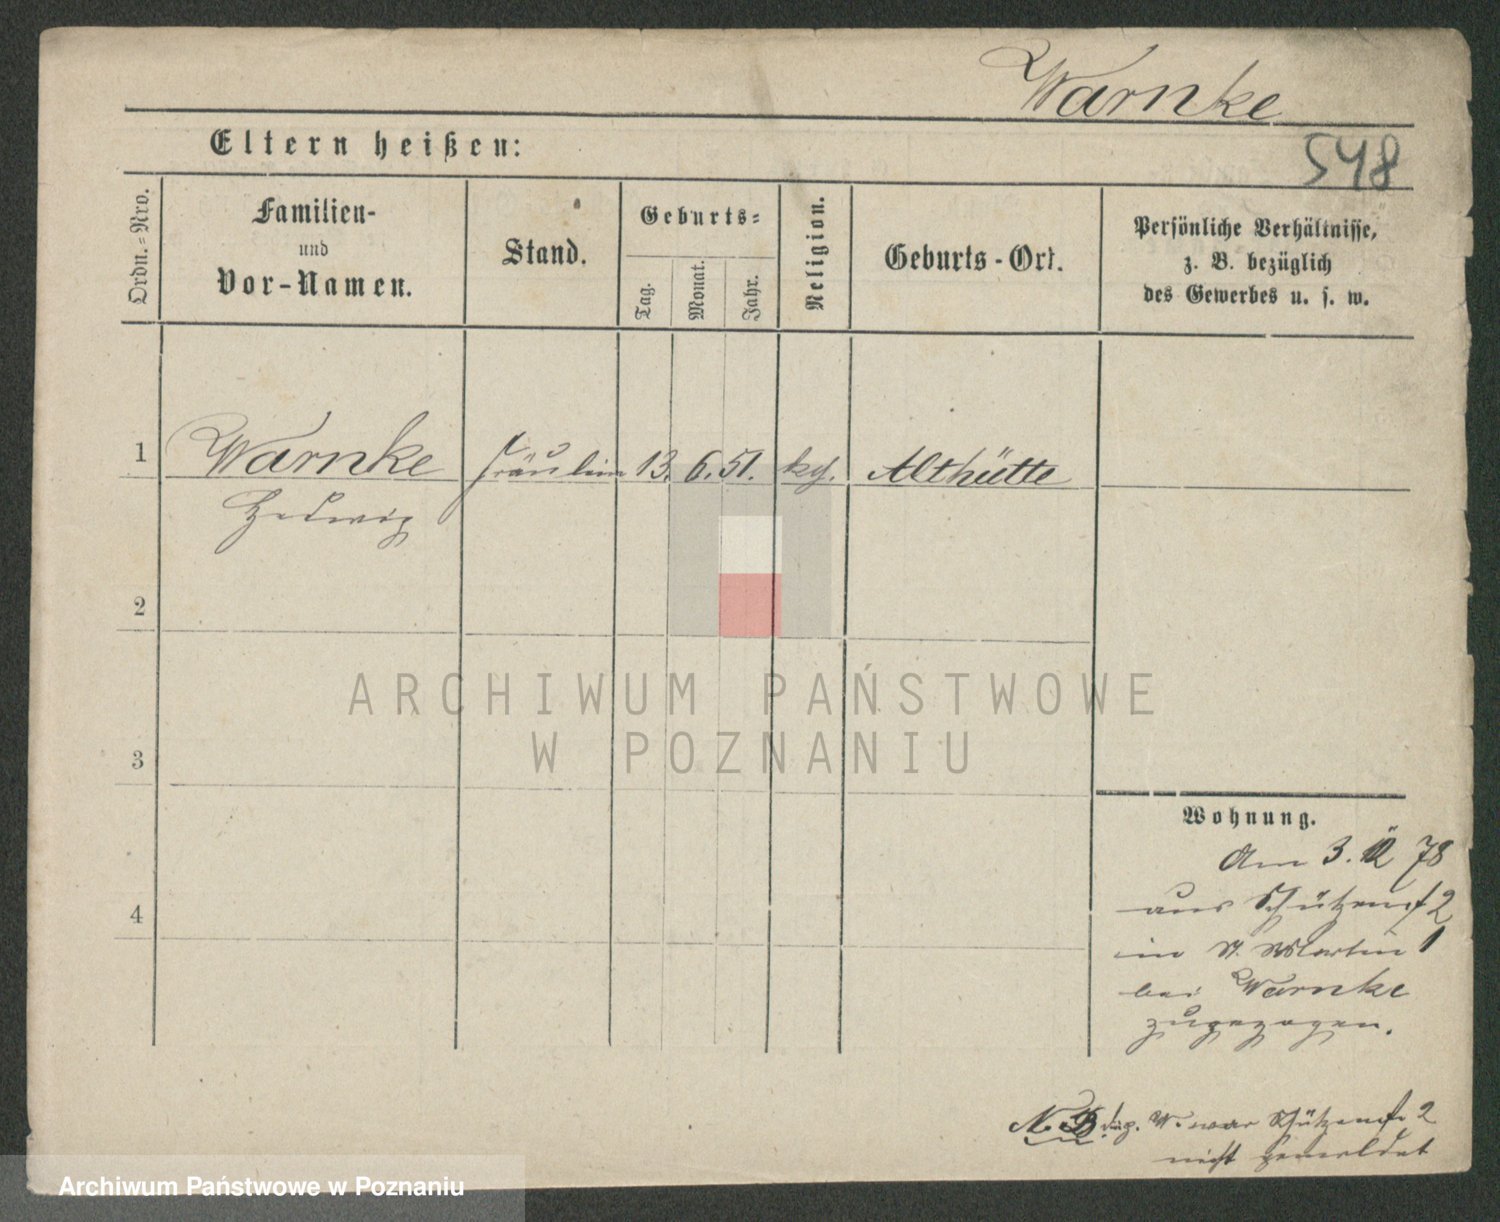 Warnke
548
Eltern heißen:
Ordn.=Nro.
Familien-
und
Vor-Namen.
Stand.
Geburts=
Tag.
Monat.
Jahr.
Religion.
Geburts-Ort.
Persönliche Verhältnisse,
z. B. bezüglich
des Gewerbes u. s. w.
1 Warnke Fräulein 13. 6. 51. Althütte
Hedwig
2
ARCHIWUM PAŃSTWOWE
W POZNANIU
3
4
Wohnung.
Am 3. 78
aus Schützenst 2
in St. Martin 1
bei Warnke
zugezogen.
N. B. W. war Schützenst. 2
nicht gemeldet
Archiwum Państwowe w Poznaniu